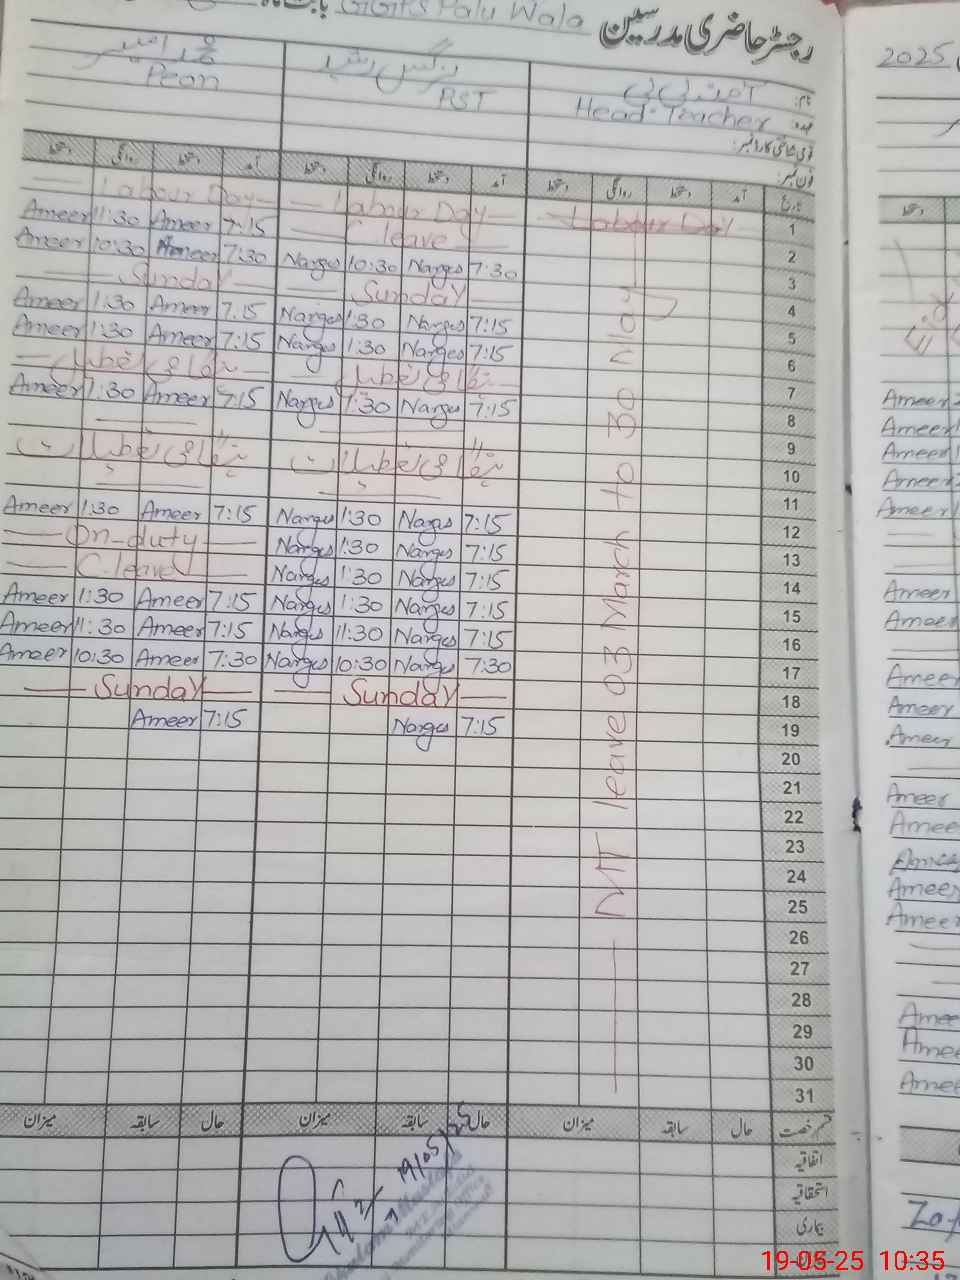 رجسٹر حاضری مدرسین GGPS Palu Wala
2025
نام: آمنہ بی بی نرگس رشید محمد امیر
عہدہ: Head-Teacher PST Peon
قومی شناختی کارڈ نمبر:
فون نمبر:
تاریخ آمد دستخط روانگی دستخط آمد دستخط روانگی دستخط آمد دستخط روانگی دستخط
1 Labour Day Labour Day Labour Day
2 C leave 7:15 Ameer 11:30 Ameer
3 7:30 Narges 10:30 Narges 7:30 Ameer 10:30 Ameer
4 Sunday Sunday
5 7:15 Narges 1:30 Narges 7:15 Ameer 1:30 Ameer
6 7:15 Narges 1:30 Narges 7:15 Ameer 1:30 Ameer
7 مقامی تعطیل مقامی تعطیل
8 7:15 Narges 1:30 Narges 7:15 Ameer 1:30 Ameer
9
10 مقامی تعطیلات مقامی تعطیلات
11
12 7:15 Narges 1:30 Narges 7:15 Ameer 1:30 Ameer
13 7:15 Narges 1:30 Narges On-duty
14 7:15 Narges 1:30 Narges C.leave
15 7:15 Narges 1:30 Narges 7:15 Ameer 1:30 Ameer
16 7:15 Narges 11:30 Narges 7:15 Ameer 11:30 Ameer
17 7:30 Narges 10:30 Narges 7:30 Ameer 10:30 Ameer
18 Sunday Sunday
19 7:15 Narges 7:15 Ameer
20
21
22
23
24
25
26
27
28
29
30
31
leave 03 March to 30 May
قسم رخصت حال سابقہ میزان حال سابقہ میزان حال سابقہ میزان
اتفاقیہ
استحقاقیہ
بیماری
19/05
Ameer
Ameer
Ameer
Ameer
Ameer
Ameer
Ameer
Ameer
Ameer
Ameer
Ameer
Ameer
Ameer
Ameer
Ameer
Ameer
Ameer
Ameer
19-05-25 10:35